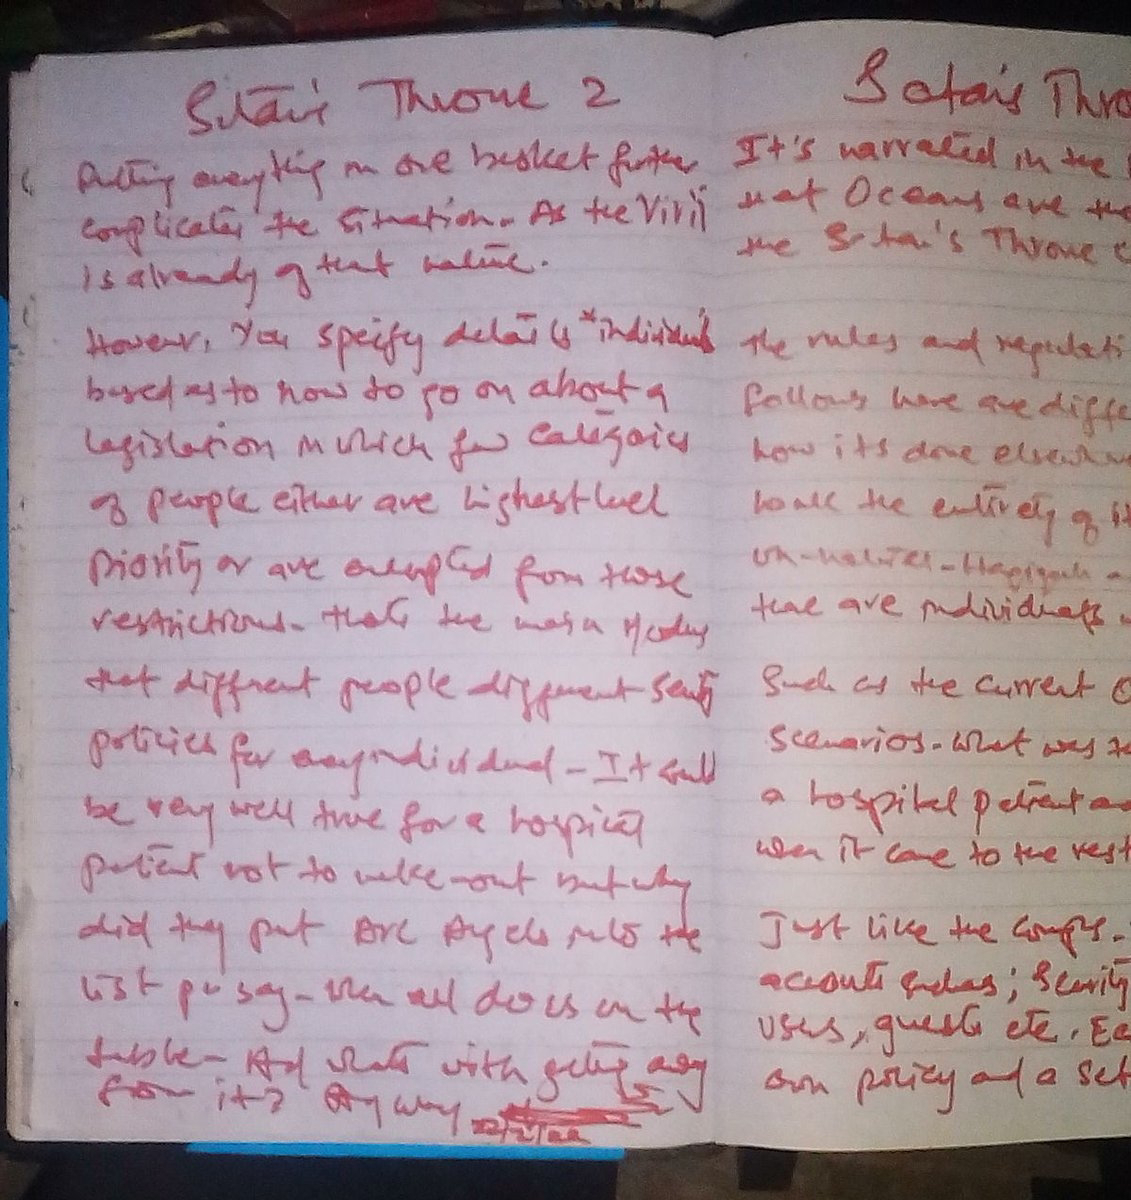 Satan's Throne 2
Putting everything in one basket further
complicates the situation. As the Virii
is already of that nature.
However, You specify details *individual
based as to how to go on about a
legislation in which few categories
of people either are highest level
priority or are exempted from those
restrictions. that's the main
that different people different
policies for any individual - It could
be very well true for a hospital
patient not to make-out but why
did they put Arc Angels into the
list pu say - when all does on the
table - And what's with getting away
from it? Any way
22/2/22
Satan's Thro
It's narrated in the
that Oceans are the
the Satan's Throne
the rules and regulati
follows here are diffe
how its done elsewhe
the entirety of it
that are individuals
Such as the current
scenarios. What was the
a hospital patient
when it came to the rest
Just like the comps.
accounts such as; Security
users, guests etc. Ea
own policy and a set